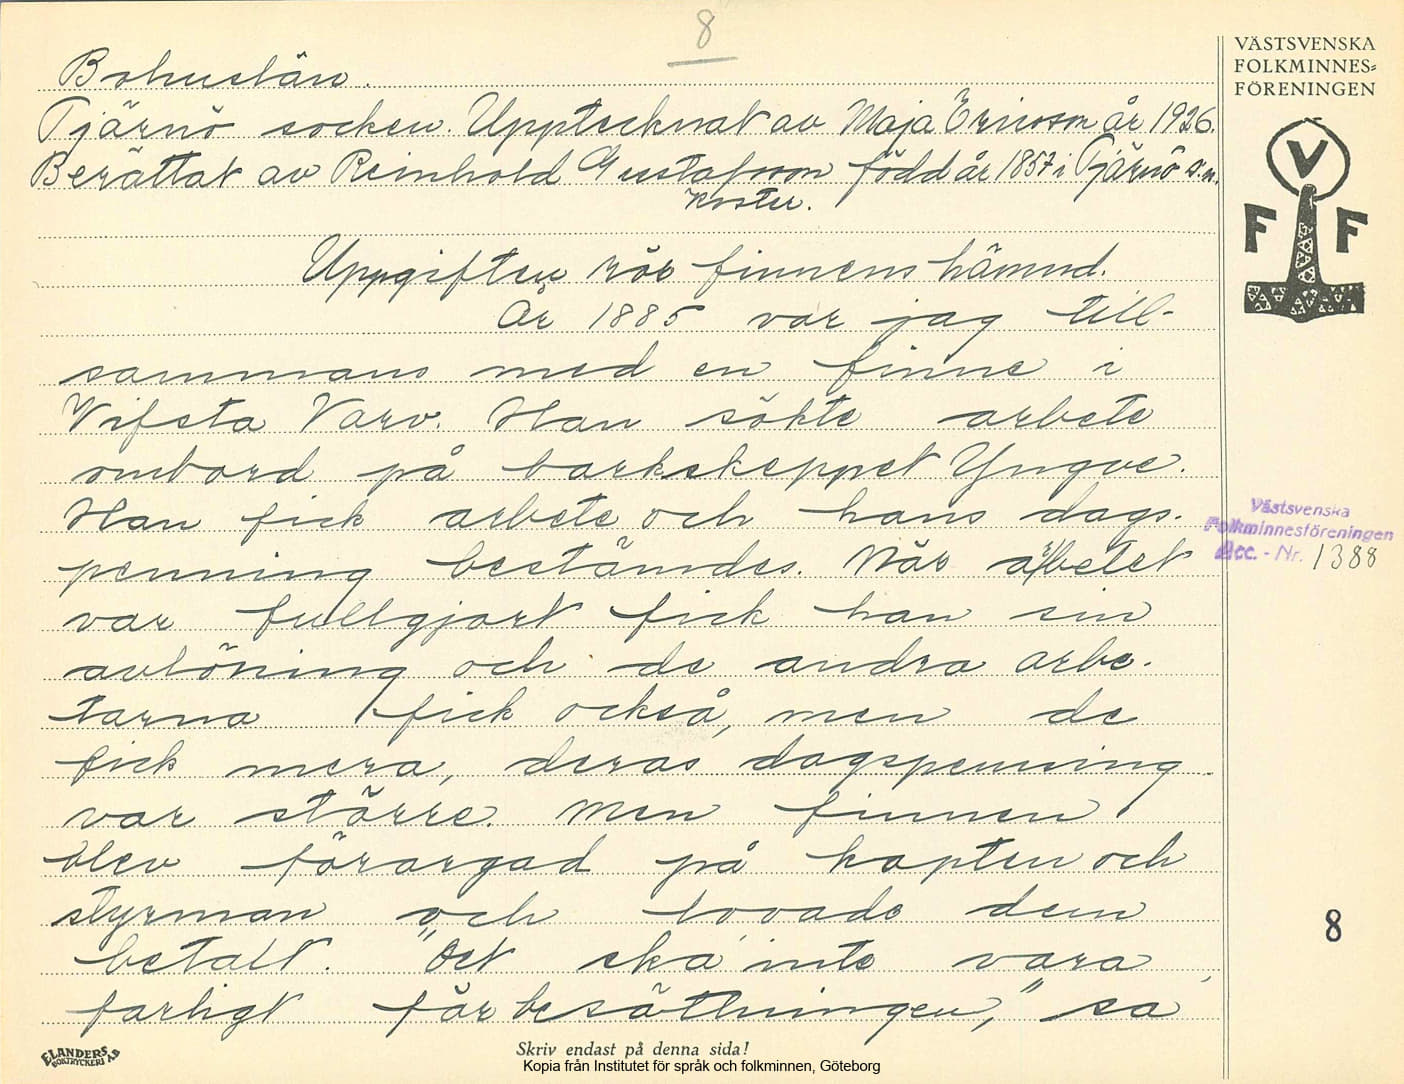 8
VÄSTSVENSKA
FOLKMINNES=
FÖRENINGEN
V
F F
Bohuslän.
Tjärnö socken. Upptecknat av Maja Ericson år 1926.
Berättat av Reinhold Gustafsson född år 1857 i Tjärnö s.n.
Koster.
Uppgiften rör finnens hämnd.
År 1885 var jag till-
sammans med en finne i
Vifsta Varv. Han sökte arbete
ombord på barkskeppet Yngve.
Han fick arbete och hans dags-
penning bestämdes. När arbetet
var fullgjort fick han sin
avlöning och de andra arbe-
tarna fick också, men de
fick mera, deras dagspenning
var större. Men finnen
blev förargad på kapten och
styrman och lovade dem
betalt. "Det ska inte vara
farligt för besättningen," sa
Västsvenska
Folkminnesföreningen
Acc. - Nr. 1388
8
ELANDERS
BOKTRYCKERI AB
Skriv endast på denna sida!
Kopia från Institutet för språk och folkminnen, Göteborg